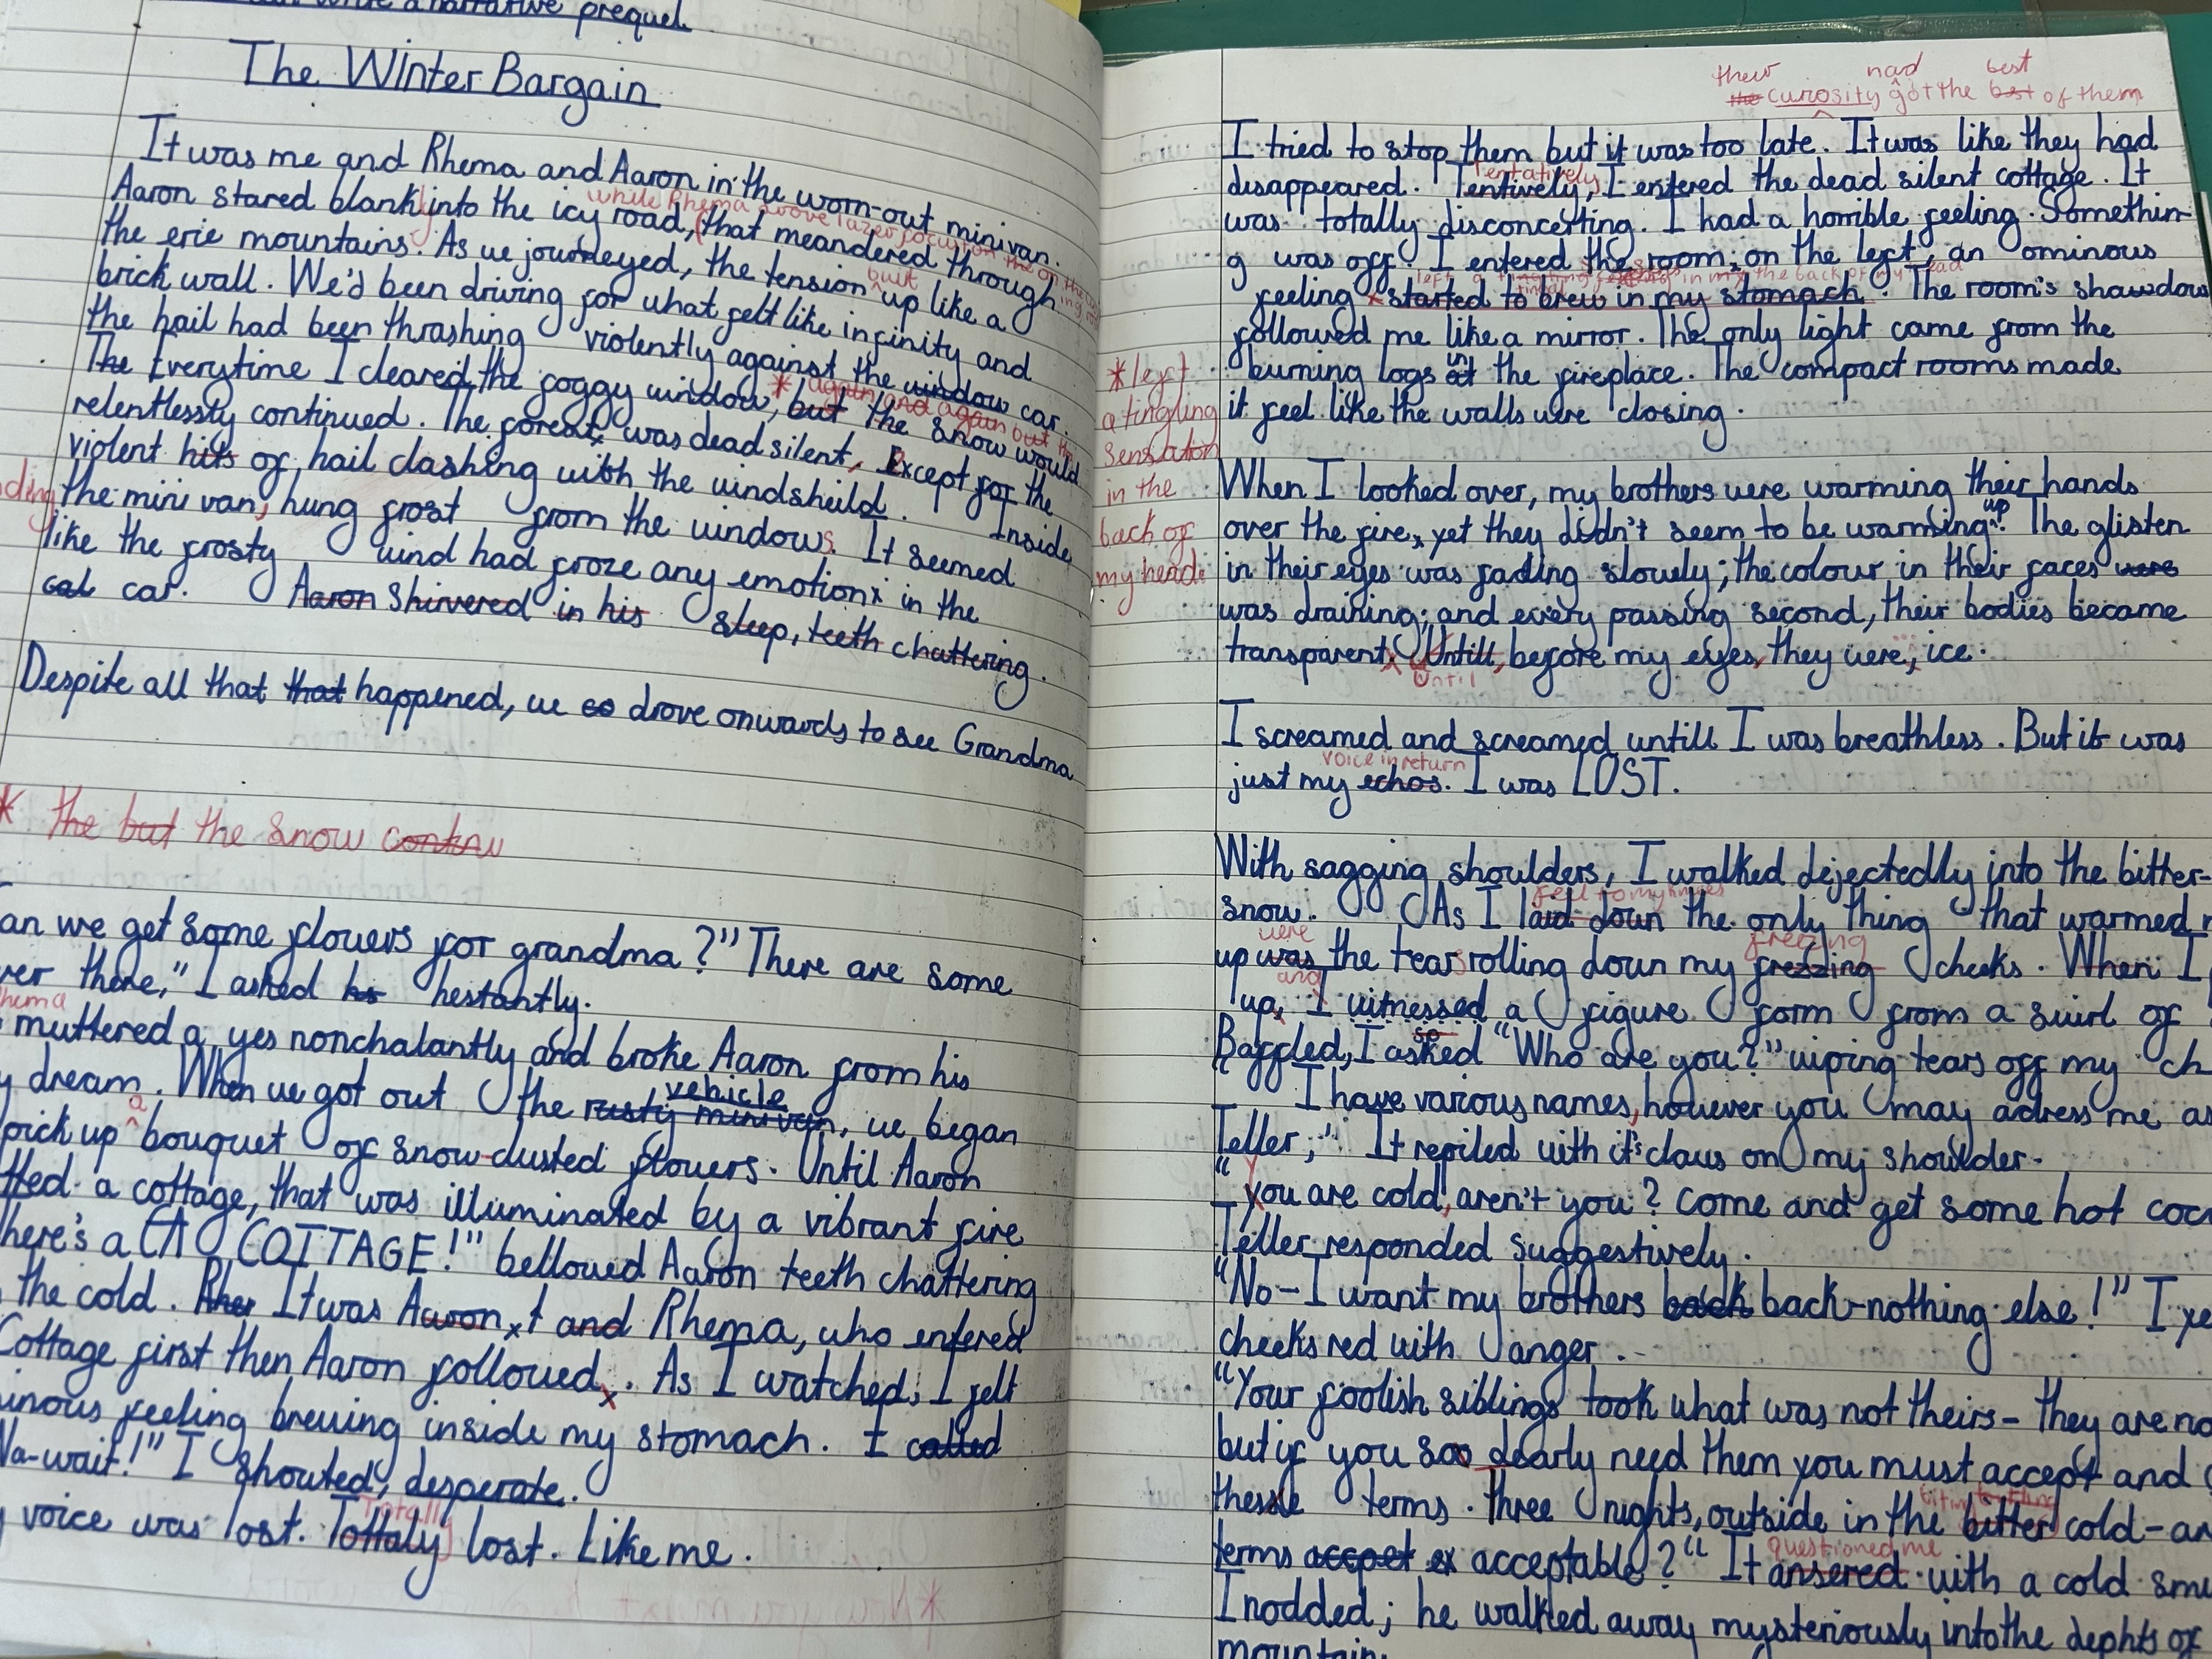 a narrative prequel.
The Winter Bargain
It was me and Rhema and Aaron in the worn-out minivan.
Aaron stared blank into the icy road, that meandered through
while Rhema drove lazer focus on the
the erie mountains. As we journeyed, the tension built up like a
brick wall. We'd been driving for what felt like infinity and
the hail had been thrashing violently against the window car.
The Everytime I cleared the foggy window, * but the snow would
again and again but the
relentlessly continued. The forest, was dead silent, Except for the
violent hits of hail clashing with the windsheild. Inside,
the mini van, hung frost from the windows. It seemed
like the frosty wind had froze any emotion in the
car. Aaron Shirvered in his sleep, teeth chattering.
Despite all that that happened, we so drove onwards to see Grandma
* the but the snow
an we get some flowers for grandma?" There are some
ver there," I asked his hestantly.
hema
muttered a yes nonchalantly and broke Aaron from his
y dream. When we got out the rusty minivan, vehicle we began
pick up a bouquet of snow-dusted flowers. Until Aaron
tted a cottage, that was illuminated by a vibrant fire
here's a CA COTTAGE!" bellowed Aaron teeth chattering
the cold. It was Aaron, and Rhema, who entered
Cottage first then Aaron followed. As I watched, I felt
inous feeling brewing inside my stomach. I called
Na-wait!" I showted, desperate.
voice was lost. Tottaly Totally lost. Like me.
their had best
the curosity got the bst of them
I tried to stop them but it was too late. It was like they had
disappeared. Tentively, Tentatively I entered the dead silent cottage. It
was totally disconcerting. I had a horrible feeling. Somethin
g was off. I entered the room, on the left, an ominous
feeling * started to brew in my stomach. The room's showdow
followed me like a mirror. The only light came from the
burning logs at in the fireplace. The compact rooms made
it feel like the walls were closing.
* left
a tingling
sensation
in the
back of
my head.
When I looked over, my brothers were warming their hands
over the fire, yet they didn't seem to be warming up. The glisten
in their eyes was fading slowly; the colour in their faces were
was draining; and every passing second, their bodies became
transparent. Untill, Until before my eyes, they were, ice.
I screamed and screamed untill I was breathless. But it was
just my echos. voice in return I was LOST.
With sagging shoulders, I walked dejectedly into the bitter-
snow. As I laid down fell to my knees the only thing that warmed
up was were the tears rolling down my frezzing freezing cheeks. When I
up, and I witnessed a figure form from a swirl of
Baffled, I asked so "Who are you?" wiping tears off my ch
"I have various names, however you may adress me as
Teller;" It repiled with it's claws on my shoulder.
"You are cold, aren't you? Come and get some hot coc
Teller responded suggestively.
"No-I want my brothers back back-nothing else!" I ye
cheeks red with anger.
"Your foolish siblings took what was not theirs- they are no
but if you soo dearly need them you must accept and
these terms. Three nights, outside in the bitter cold-an
terms accpet ex acceptable?" It ansered questioned me with a cold smi
I nodded; he walked away mysteriously into the dephts of
mountain.